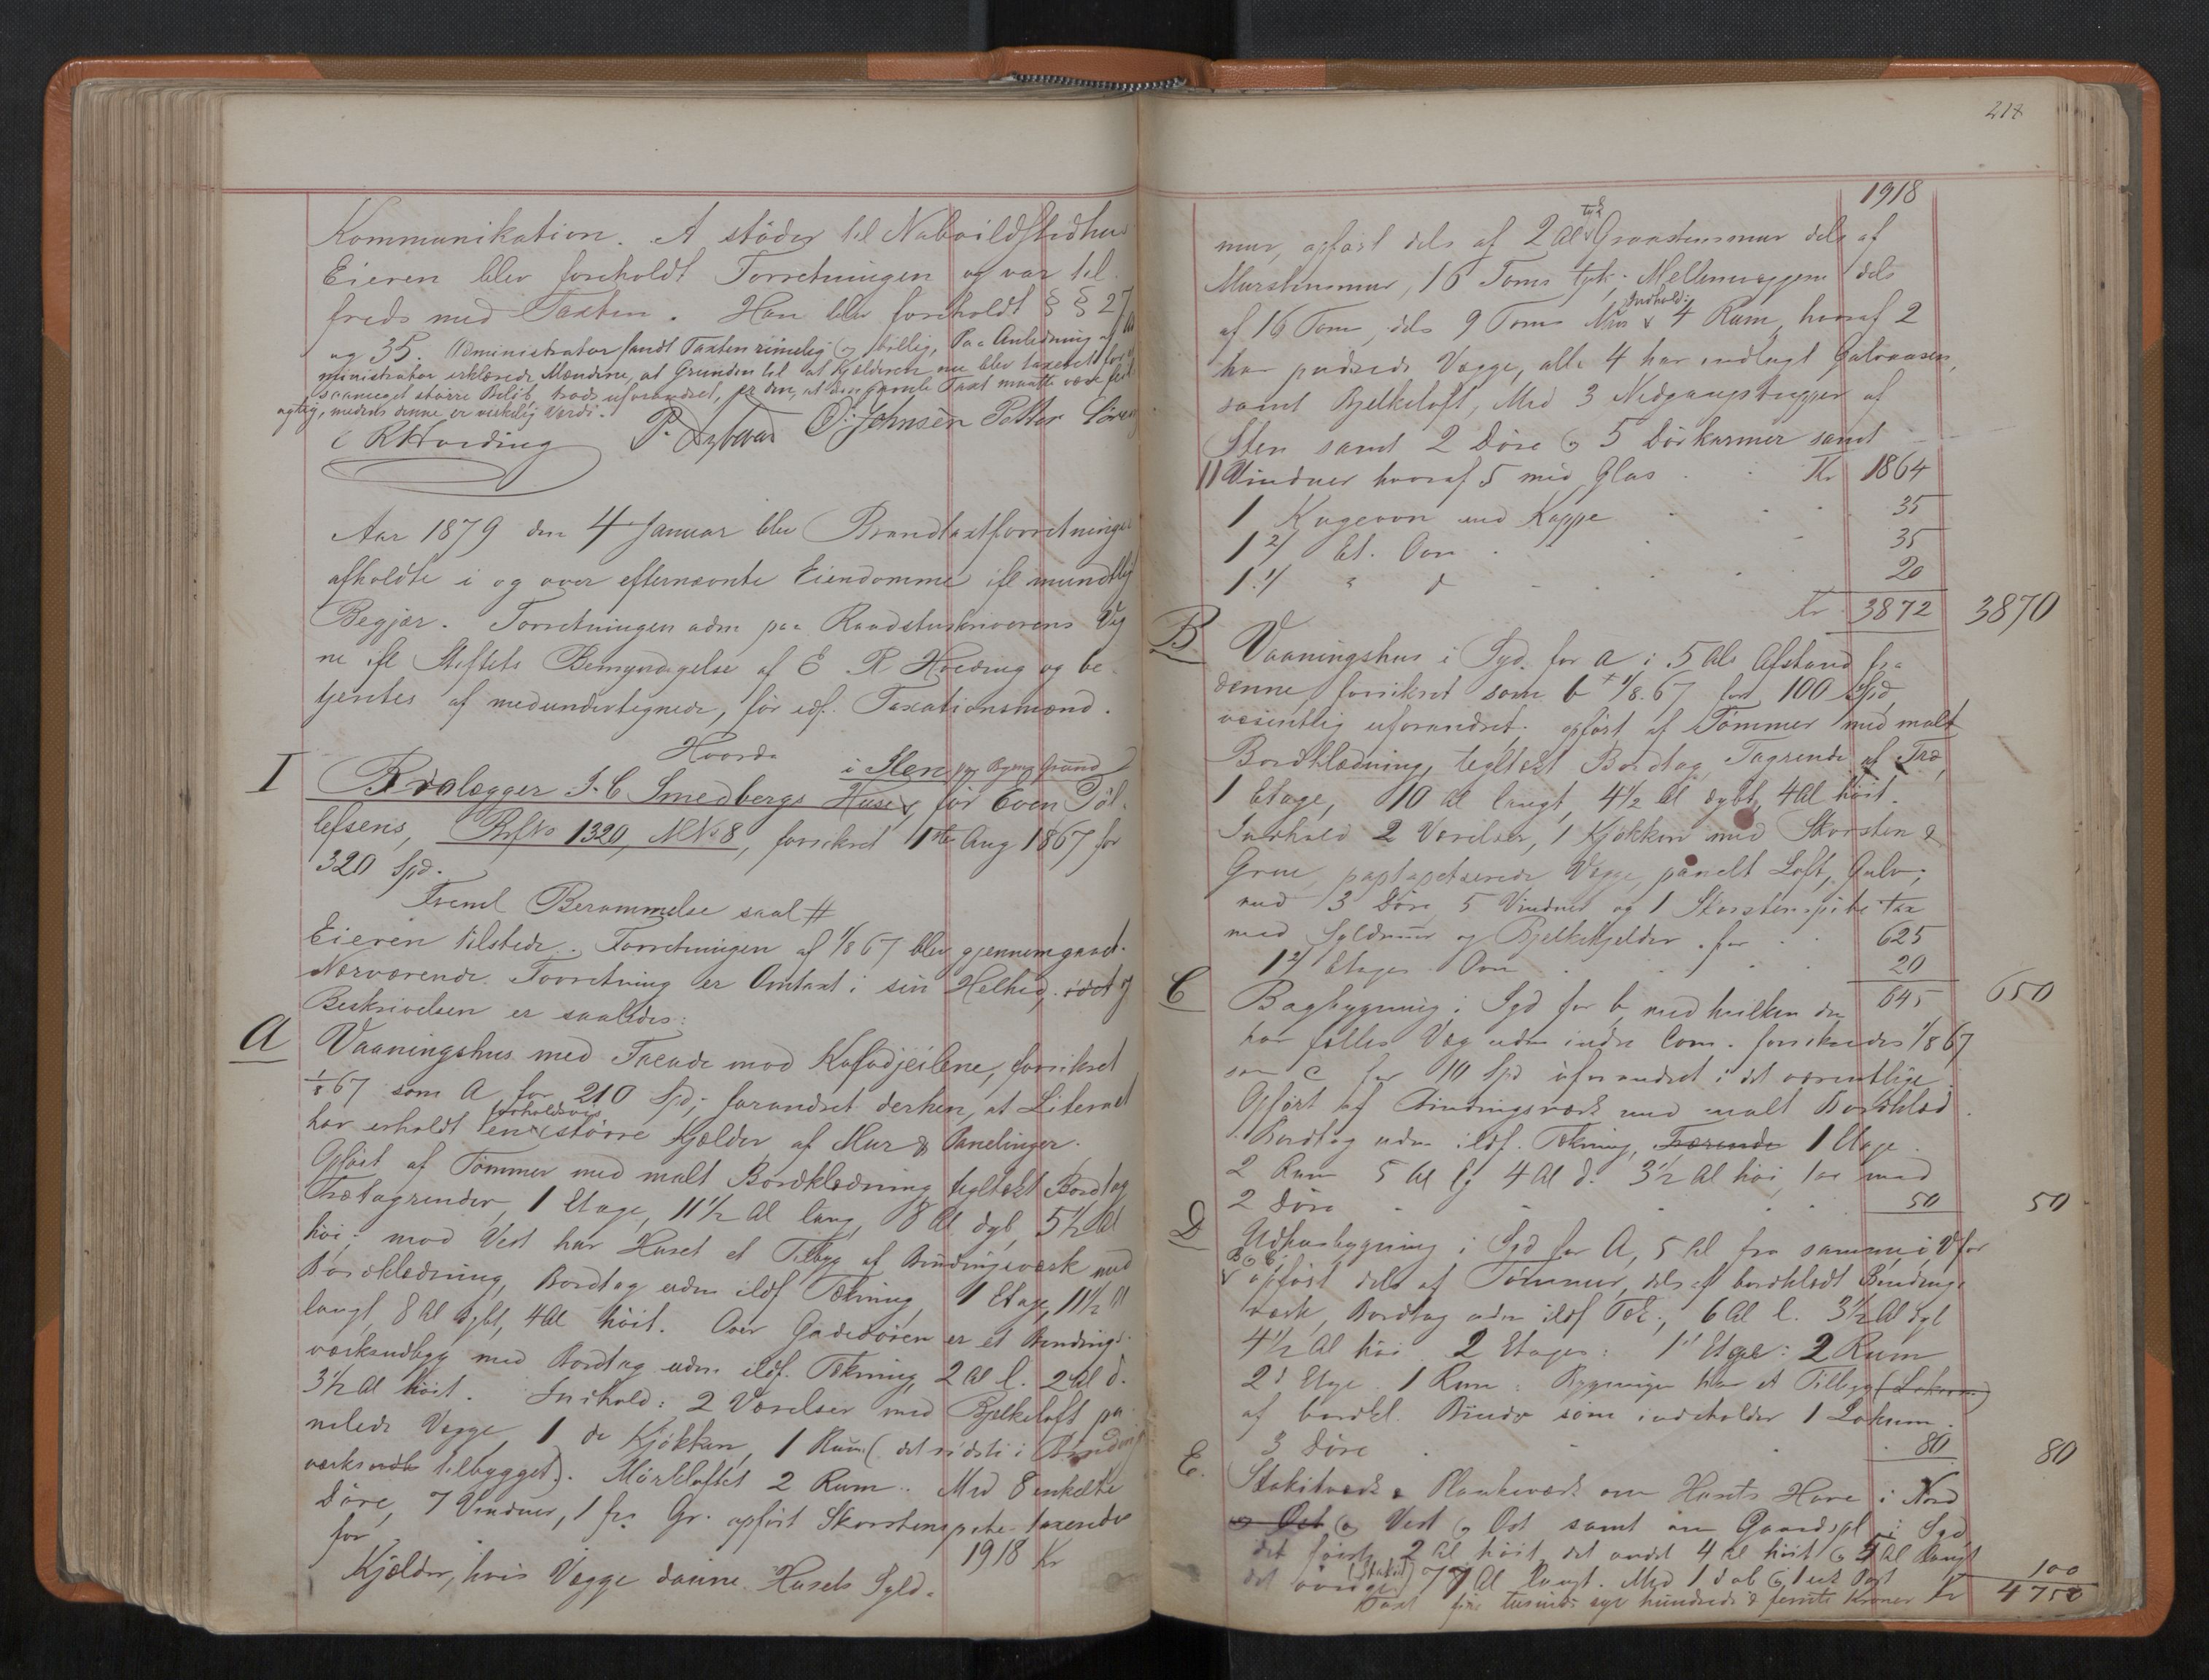 Kommunikation. A støder til Naboildstedhus
Eieren blev foreholdt Forretningen og var til-
freds med Taxten. Han blev foreholdt § § 27
og 35. Administrator fandt Taxten rimelig og billig, Paa Anledning af
ministrator erklærede Mændene, at Grunden til at Kjælderen nu blev taxeret for et
saameget større Beløb, trods uforandret, er den, at den gamle Taxt maatte være feil-
agtig, medens denne er virkelig Værdi.
E R Hvoding P. O. Johnsen Petter
Aar 1879 den 4 Januar blev Brandtaxtforretninger
afholdte i og over efternævnte Eiendomme ifl mundtlig
Begjær. Forretningen adm paa Raadstuskriverens Veg
ne ifl Stiftets Bemyndigelse af E R Hvoding og be-
tjentes af medundertegnede, før edf. Taxationsmænd.
Hvorda
I Brolægger J. C. Smedbergs Huse i Ilen paa Bygrund, før Even Tøl-
lefsens, BrfNo 1320, MNo 8, forsikret 1ste Aug 1867 for
320 Spd.
Freml Berammelse saal #
Eieren tilstede. Forretningen af 1/8 67 blev gjennemgaaet.
Nærværende Forretning er Omtaxt i sin Helhed. idet
Beskrivelsen er saaledes:
A Vaaningshus med Facade mod Kafadjeilene, forsikret
1/8 67 som A for 210 Spd; forandret derhen, at Literaet
har erholdt en forholdsvis større Kjælder af Mur & Panelinger.
Opført af Tømmer med malt Bordklædning tegltækt Bordtag
Trætagrender, 1 Etage, 11 1/2 Al lang, 8 Al dyb, 5 1/2 Al
høi: mod Vest har Huset et Tilbyg af Bindingsværk med
Bordklædning, Bordtag uden ildf Tækning, 1 Etage, 11 1/2 Al
langt, 8 Al dybt, 4 Al høit. Over Gadedøren er et Bindings-
værksudbyg med Bordtag uden ildf. Tækning, 2 Al l. 2 Al d.
3 1/2 Al høit. Indhold: 2 Værelser med Bjelkeloft pa-
nelede Vægge, 1 do Kjøkken, 1 Rum (det sidste i Bindings
værks tilbygget). Mørkloftet 2 Rum. Med 8 enkelte
Døre, 7 Vinduer, 1 fra Gr. opført Skorstenspibe taxeredes
for 1918 Kr
Kjælder, hvis Vægge danne Husets Syld-
218
1918
mur, opført dels af 2 Al tyk Graastensmur dels af
Murstensmur, 16 Toms tyk; Mellemvæggene dels
af 16 Tom, dels 9 Toms Mur Indhold: 4 Rum, hvoraf 2
har pudsede Vægge, alle 4 har indlagt Gulvaasen,
samt Bjelkeloft, Med 3 Nedgangstrapper af
Sten samt 2 Døre og 5 Dørkarmer samt
11 Vinduer hvoraf 5 med Glas Kr 1864
1 Kogeovn med Kappe 35
1 2/ Et. Ovn 35
1 1/ " d 20
Kr 3872 3870
B Vaaningshus i Syd. for A i 5 Als Afstand fra
denne, forsikret som b 1/8.67 for 100 Spd,
væsentlig uforandret. opført af Tømmer med malt
Bordklædning, tegltækt Bordtag, Tagrende af Træ,
1 Etage, 10 Al langt, 4 1/2 Al dybt, 4 Al høit.
Indhold 2 Værelser, 1 Kjøkken med Skorsten &
Grue, paptapetserede Vægge, panelt Loft, Gulv;
med 3 Døre 5 Vinduer og 1 Skorstenspibe tax
med Syldmur og Bjelkekjelder for 625
1 2/ Etages Ovn 20
645 650
C Bagbygning i Syd for b, med hvilken den
har fælles Væg uden indre Com. forsikredes 1/8 67
som c for 10 Spd uforandret i det væsentlige
Opført af Bindingsværk med malt Bordklæd
Bordtag uden ildf. Tækning, Trærende 1 Etage.
2 Rum 5 Al lg 4 Al d. 3 1/2 Al høi, tax med
2 Døre 50 50
D Udhusbygning i Syd for A, 5 Al fra samme, i V for
B og C, opført dels af Tømmer, dels af bordklædt Bindings-
værk, Bordtag uden ildf Tæk., 6 Al l. 3 1/2 Al dyb
4 1/2 Al høi 2 Etager: 1st Etage: 2 Rum
2d Etage 1 Rum: Bygningen har et Tilbyg (Lokum)
af bordkl. Bindv som indeholder 1 Lokum.
3 Døre 80 80
E. Stakitværk & Plankeværk om Husets Have i Nord
og Øst og Vest og Øst samt om Gaardspl i Syd
det første 2 Al høit, det andet 4 Al høit og 4 Al langt
det øvrige (Stakit) 77 Al langt. Med 1 dob og 1 enk Port 100
Taxt fire tusinde syv hundrede & femti Kroner Kr 4750